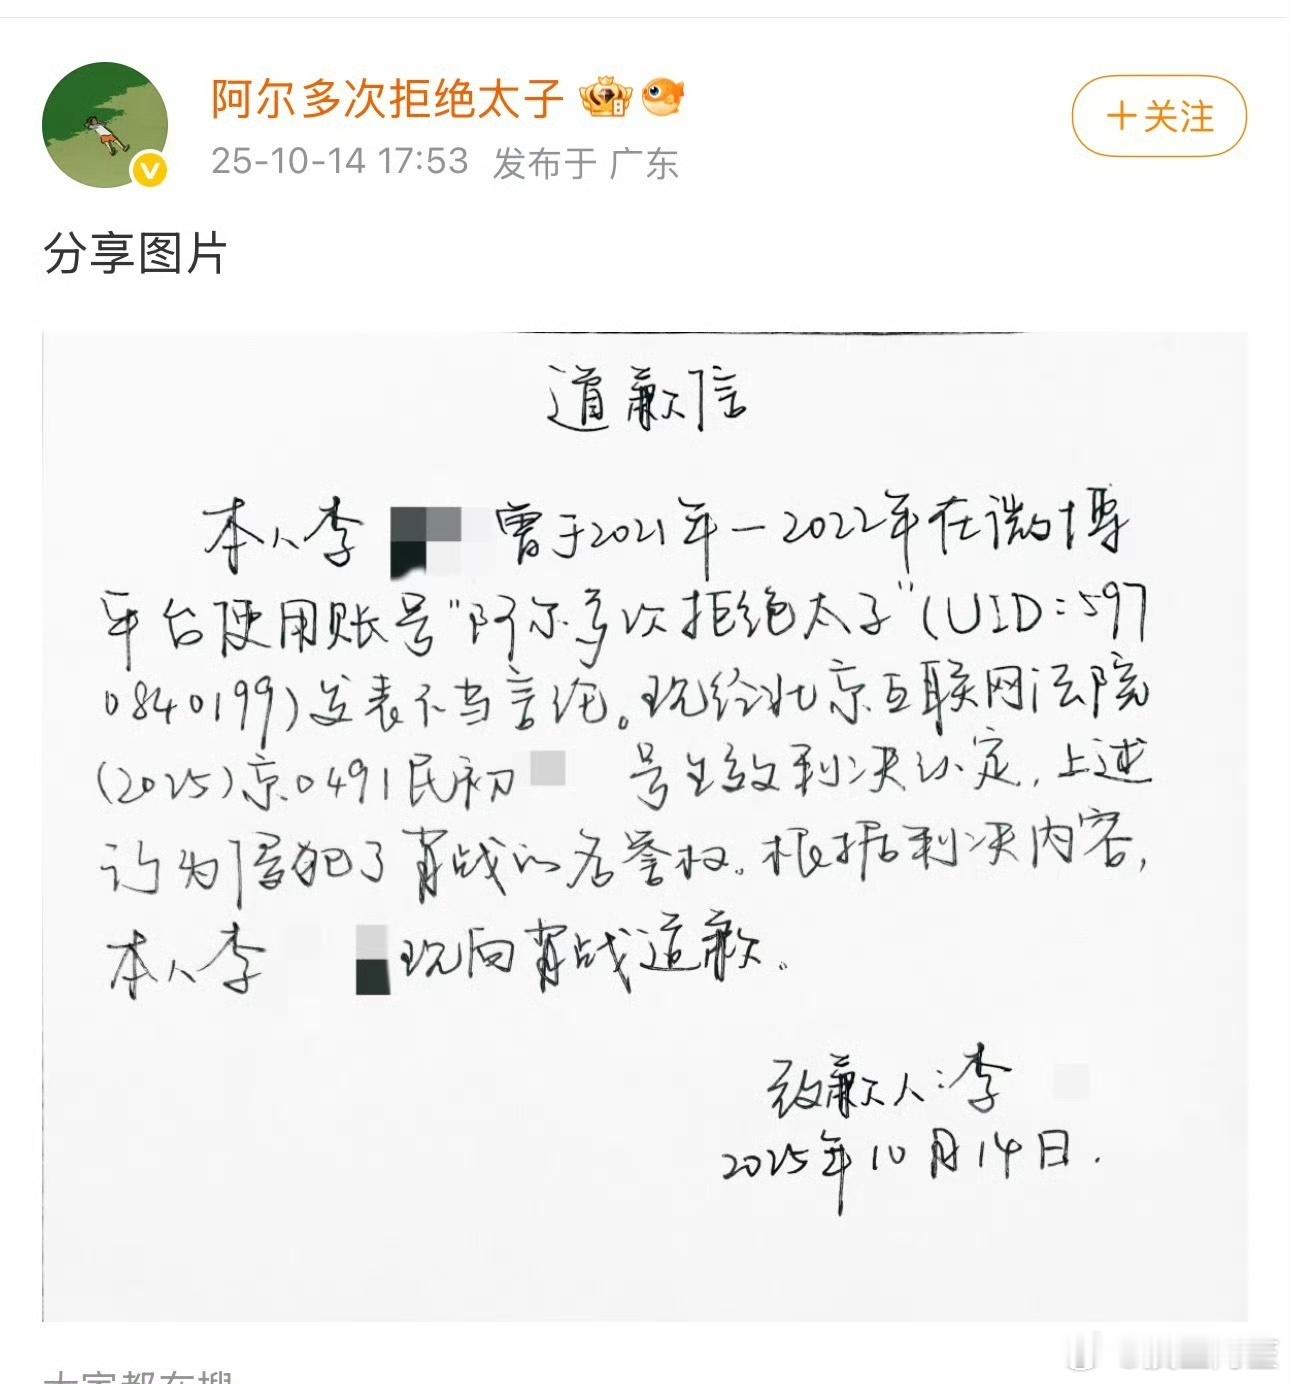 阿尔多次拒绝太子
25-10-14 17:53 发布于 广东
+关注
分享图片
道歉信
本人李 曾于2021年-2022年在微博
平台使用账号“阿尔多次拒绝太子”(UID:597
0840199)发表不当言论。现经北京互联网法院
(2025)京0491民初 号生效判决认定,上述
行为侵犯了肖战的名誉权。根据判决内容,
本人李 现向肖战道歉。
致歉人:李
2025年10月14日.
大家都在搜